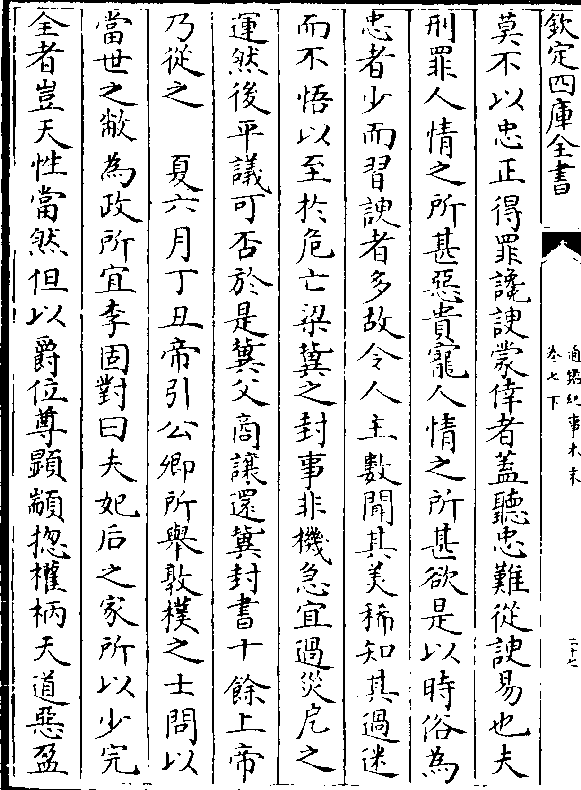 欽定四庫全書
通鑑紀事本末
卷七下
二十七
莫不以忠正得罪讒諛蒙倖者蓋聽忠難從諛易也夫
刑罪人情之所甚惡貴寵人情之所甚欲是以時俗為
忠者少而習諛者多故令人主數聞其美稀知其過迷
而不悟以至於危亡梁冀之封事非機急宜過災戹之
運然後平議可否於是冀父商讓還冀封書十餘上帝
乃從之　夏六月丁丑帝引公卿所舉敦樸之士問以
當世之敝為政所宜李固對曰夫妃后之家所以少完
全者豈天性當然但以爵位尊顯顓揔權柄天道惡盈